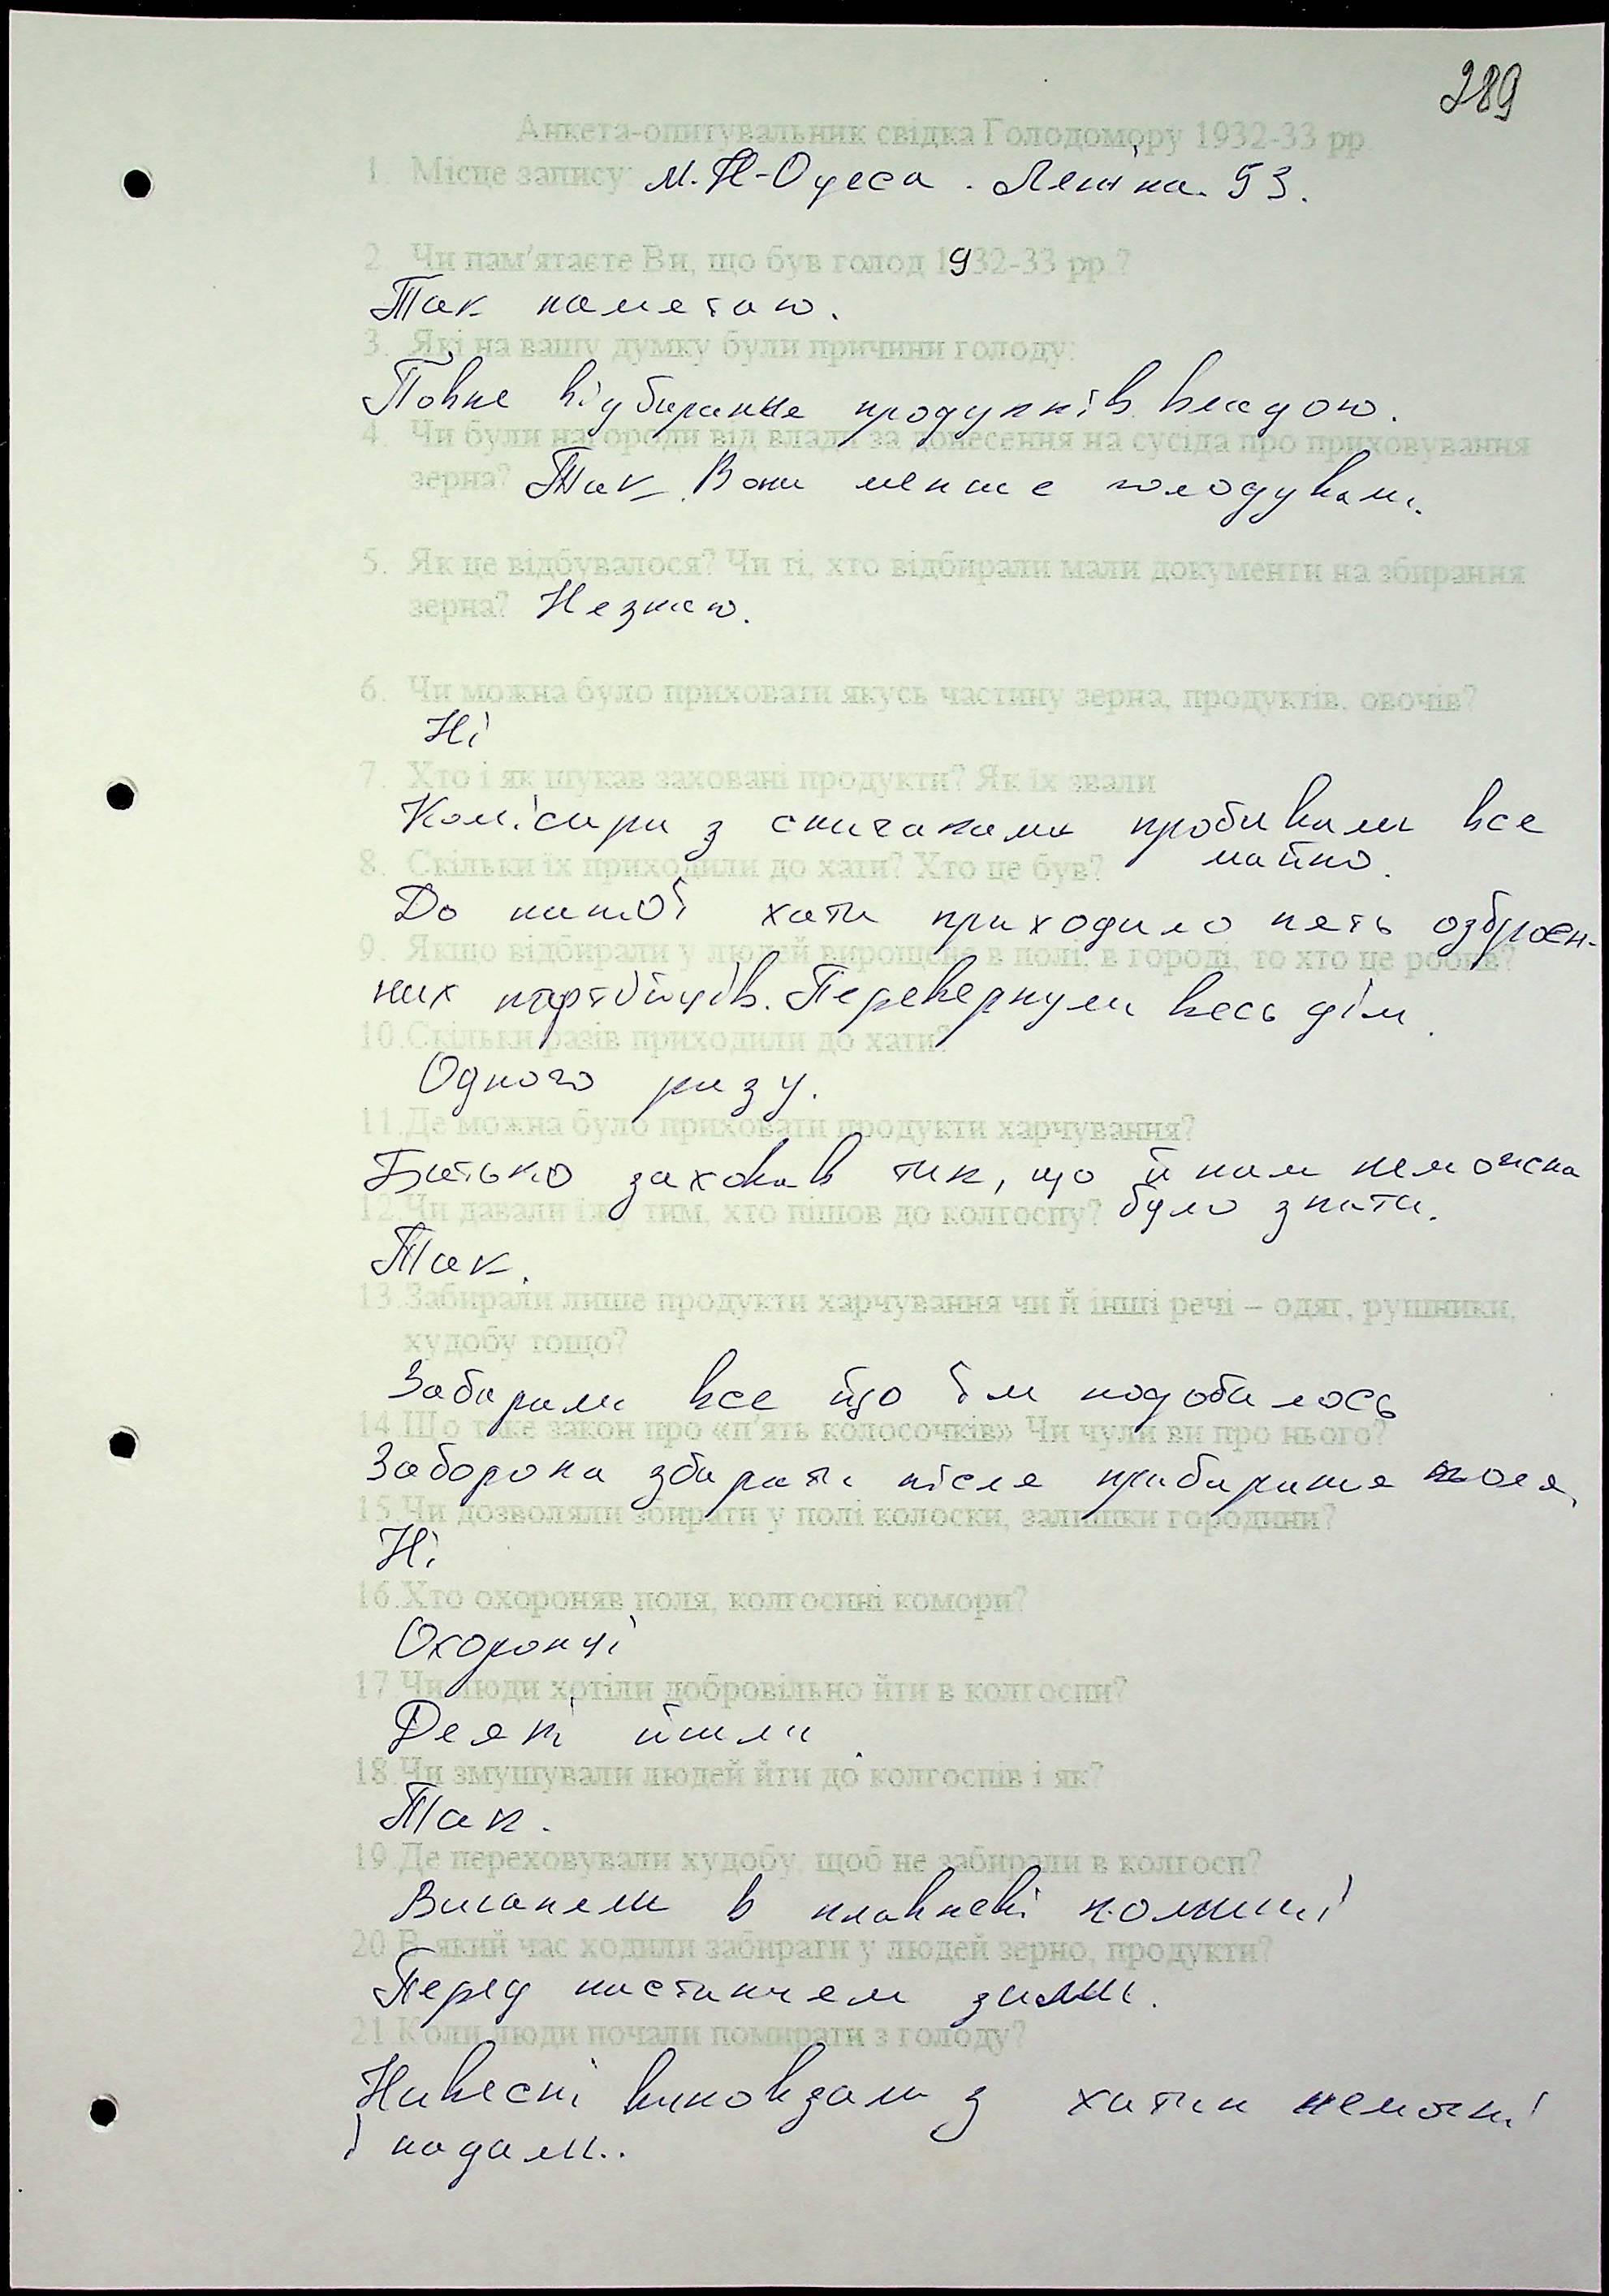 289
Анкета-опитувальник свідка Голодомору 1932-33 рр.
1. Місце запису: м. Н-Одеса. Леніна. 53.
2. Чи пам'ятаєте Ви, що був голод 1932-33 рр.?
Так паметаю.
3. Які на вашу думку були причини голоду:
Повне відбирання продуктів владою.
4. Чи були нагороди від влади за донесення на сусіда про приховування
зерна? Так. Вони менше голодували.
5. Як це відбувалося? Чи ті, хто відбирали мали документи на збирання
зерна? Незнаю.
6. Чи можна було приховати якусь частину зерна, продуктів, овочів?
Ні
7. Хто і як шукав заховані продукти? Як їх звали
Комісари з спичаками пробивали все
майно.
8. Скільки їх приходили до хати? Хто це був?
До нашої хати приходило пять озброєн-
9. Якщо відбирали у людей вирощене в полі, в городі, то хто це робив?
них партійців. Перевернули весь дім.
10. Скільки разів приходили до хати?
Одного разу.
11. Де можна було приховати продукти харчування?
Батько заховав так, що й нам неможна
було знати.
12. Чи давали їжу тим, хто пішов до колгоспу?
Так.
13. Забирали лише продукти харчування чи й інші речі – одяг, рушники,
худобу тощо?
Забирали все що їм подобалось
14. Що таке закон про «п'ять колосочків» Чи чули ви про нього?
Заборона збирати після прибирання поля.
15. Чи дозволяли збирати у полі колоски, залишки городини?
Ні
16. Хто охороняв поля, колгоспні комори?
Охоронці
17. Чи люди хотіли добровільно йти в колгоспи?
Деякі йшли.
18. Чи змушували людей йти до колгоспів і як?
Так.
19. Де переховували худобу, щоб не забирали в колгосп?
Виганяли в плавневі
20. В який час ходили забирати у людей зерно, продукти?
Перед настанчем зими.
21. Коли люди почали помирати з голоду?
Навесні виповзали з хатин немочні
і падали..